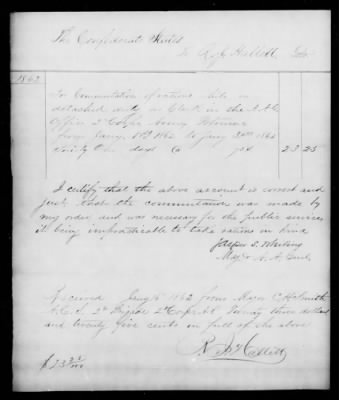 The Confederate States
To R. J. Hallett Dr
1862
For Commutation of rations while on
detached duty as Clerk in the A.A.G.
Office 2d Corps Army Potomac
from Jany 1st 1862 to Jany 31st 1862
Thirty One days @ 75¢ 23.25
I certify that the above account is correct and
just, that the commutation was made by
my order, and was necessary for the public service
it being impracticable to take rations in kind
Jasper S. Whiting
Maj & A. A. Genl
Received Jany 1862 from Major
A.C.S. 2d Brigade 2d Corps A.P. Twenty three dollars
and twenty five cents in full of the above
$23 25/100
R. J. Hallett